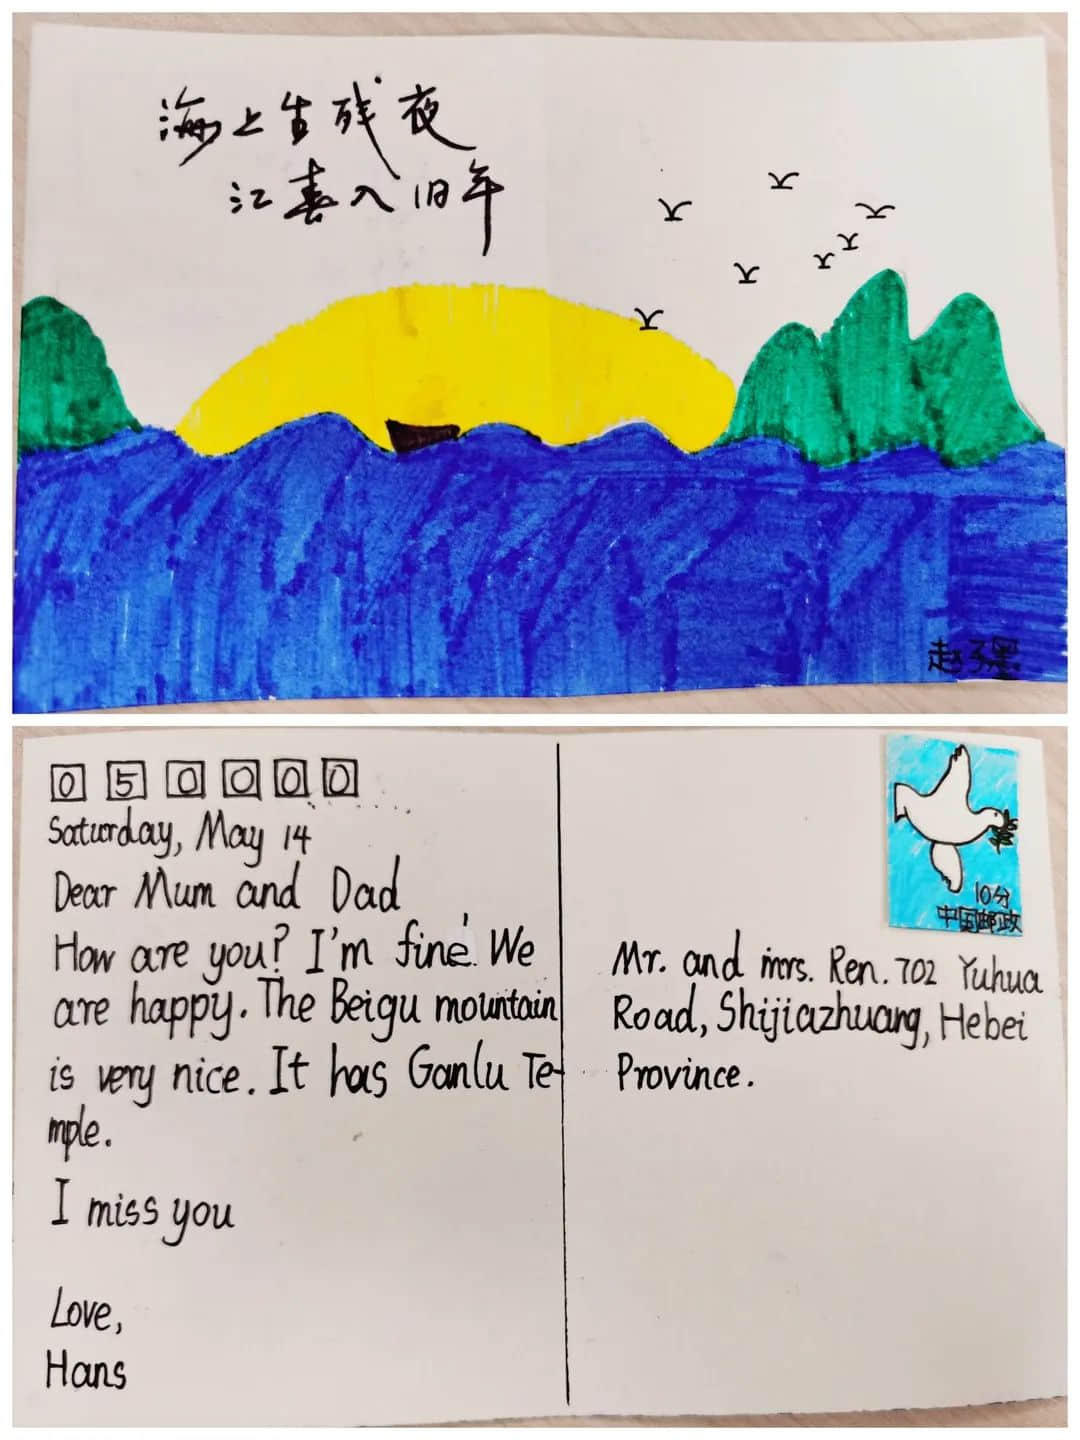 海上生残夜
江喜入旧年
赵子墨
050000
Saturday, May 14
Dear Mum and Dad
How are you? I'm fine. We
are happy. The Beigu mountain
is very nice. It has Ganlu Te-
mple.
I miss you
Love,
Hans
10分
中国邮政
Mr. and mrs. Ren. 702 Yuhua
Road, Shijiazhuang, Hebei
Province.